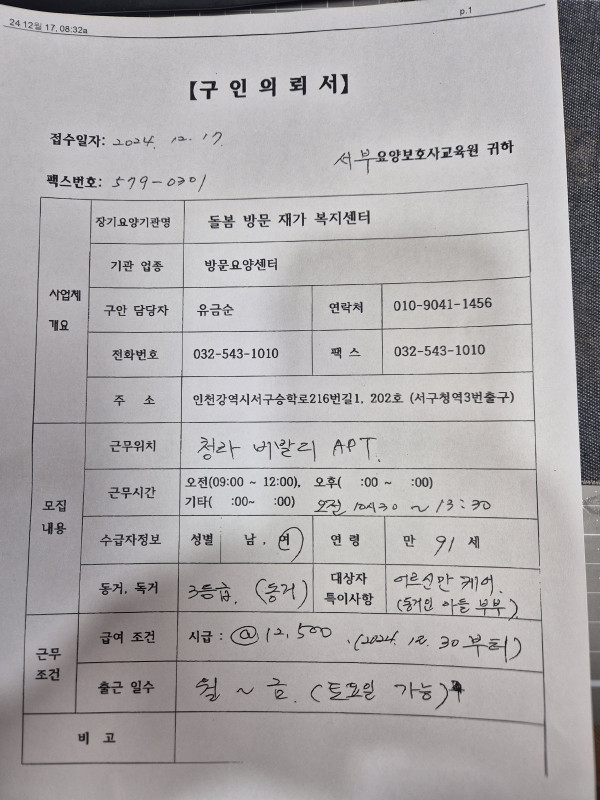 24 12월 17, 08:32a
p.1
【구 인 의 뢰 서】
접수일자: 2024. 12. 17.
서부요양보호사교육원 귀하
팩스번호: 579-0301
사업체 개요
장기요양기관명 돌봄 방문 재가 복지센터
기관 업종 방문요양센터
구안 담당자 유금순 연락처 010-9041-1456
전화번호 032-543-1010 팩 스 032-543-1010
주 소 인천강역시서구승학로216번길1, 202호 (서구청역3번출구)
모집 내용
근무위치 청라 APT.
근무시간 오전(09:00 ~ 12:00), 오후( :00 ~ :00)
기타( :00~ :00) 오전 10시30 ~ 13:30
수급자정보 성별 남, 여 연 령 만 91 세
동거, 독거 3등급. (동거) 대상자 특이사항 어르신만 케어.
(동거인 아들 부부)
근무 조건
급여 조건 시급 : @12,500 .(2024. 12. 30 부터)
출근 일수 월 ~ 금. (토요일 가능)
비 고